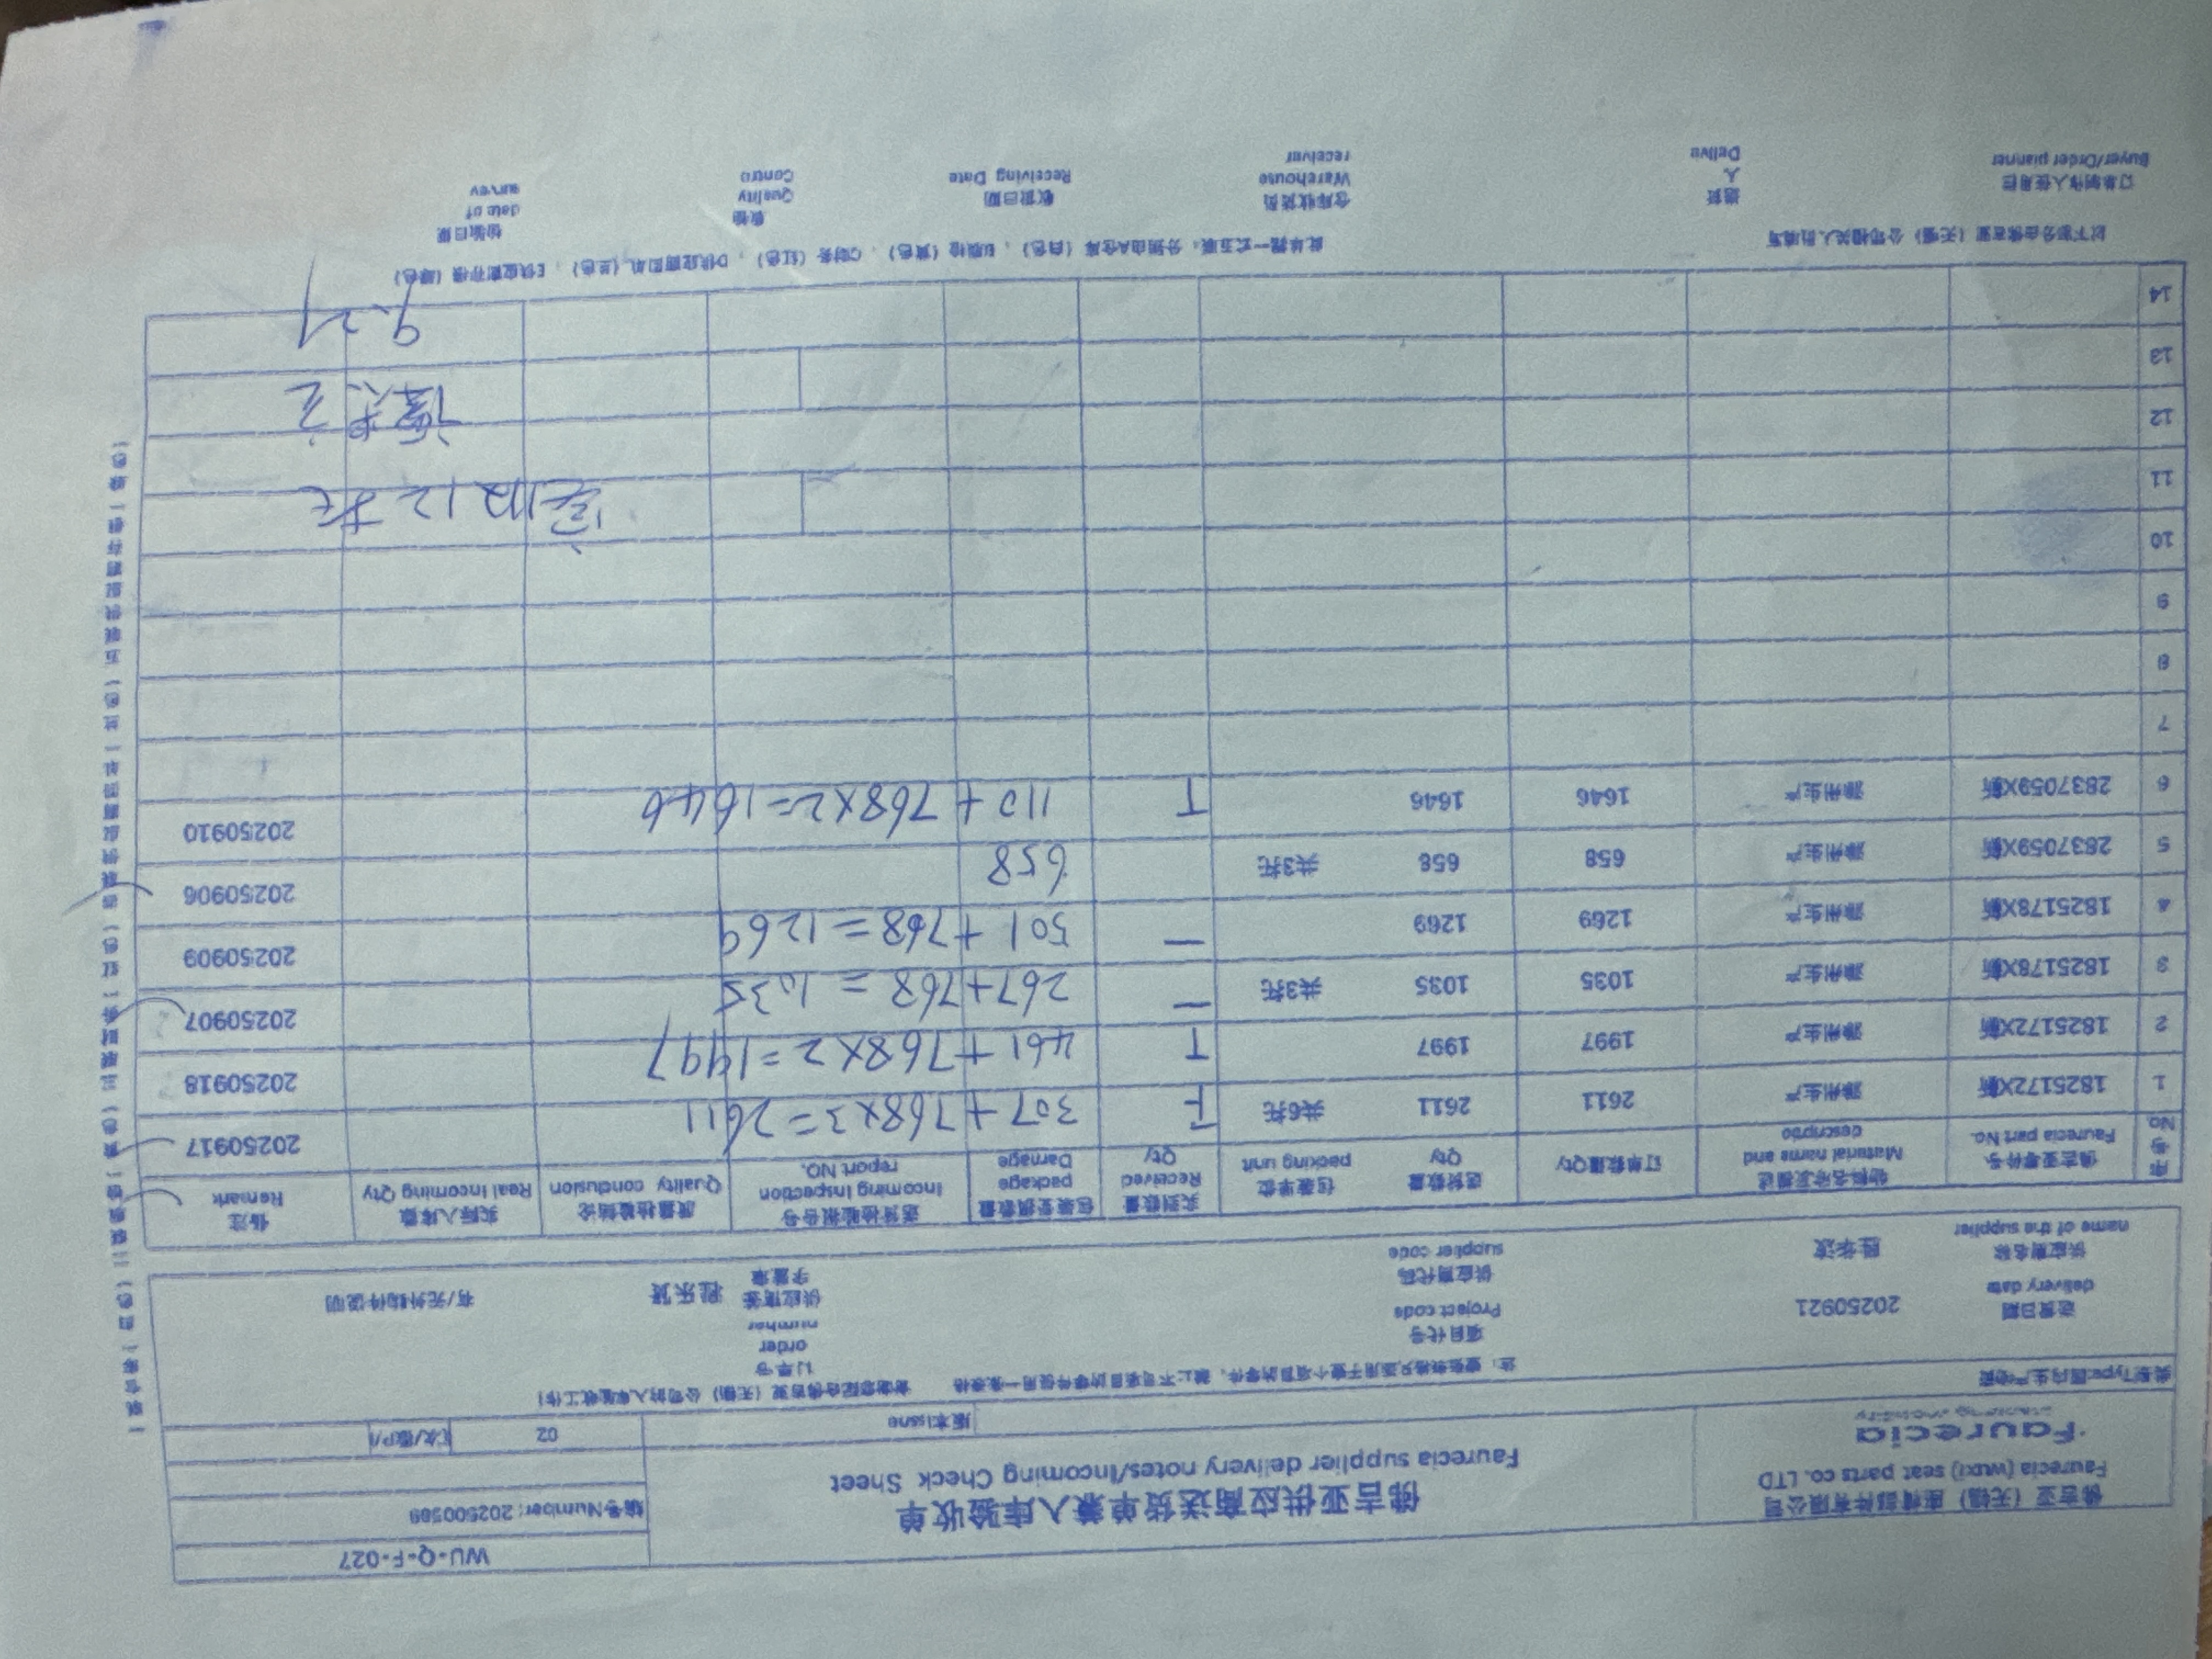 佛吉亚（无锡）座椅部件有限公司
Faurecia (wuxi) seat parts co. LTD
Faurecia
佛吉亚供应商送货单兼入库验收单
Faurecia supplier delivery notes/Incoming Check Sheet
WU-Q-F-027
编号Number: 202500569
版本Issne 02
类型Type:国内生产物资
注：验收
送货日期 delivery date 20250921
项目代号 Project code
订单号 order number
供应商名称 name of the supplier 胜华波
供应商代码 supplier code
供应商签字盖章 程乐贤
有/无外购件说明
序号 No
佛吉亚零件号 Faurecia part No.
物料名称及描述 Material name and descriptio
订单数量Qty
送货数量 Qty
包装单位 packing unit
实到数量 Received Qty
包装受损数量 package Damage
送货检验报告号 Incoming Inspection report NO.
质量检验结论 Quality conclusion
实际入库数 Real Incoming Qty
备注 Remark
1 1825172X新 滁州生产 2611 2611 共6托 307+768×3=2611 20250917
2 1825172X新 滁州生产 1997 1997 461+768×2=1997 20250918
3 1825178X新 滁州生产 1035 1035 共3托 267+768=1035 20250907
4 1825178X新 滁州生产 1269 1269 501+768=1269 20250909
5 2837059X新 滁州生产 658 658 共3托 658 20250906
6 2837059X新 滁州生产 1646 1646 110+768×2=1646 20250910
7
8
9
10
11 实收12托
12
13
14 9.21
以下部分由佛吉亚（无锡）公司相关人员填写
此单据一式五联：分别由A仓库（白色）、B质检（黄色）、C财务（红色）、D供应商回执（兰色）、E供应商存根（绿色）
订单制作人使用栏 Buyer/Order planner
送货人 Delive
仓库收货员 Warehouse receiver
收货日期 Receiving Date
质检 Quality Contro
检验日期 date of survey